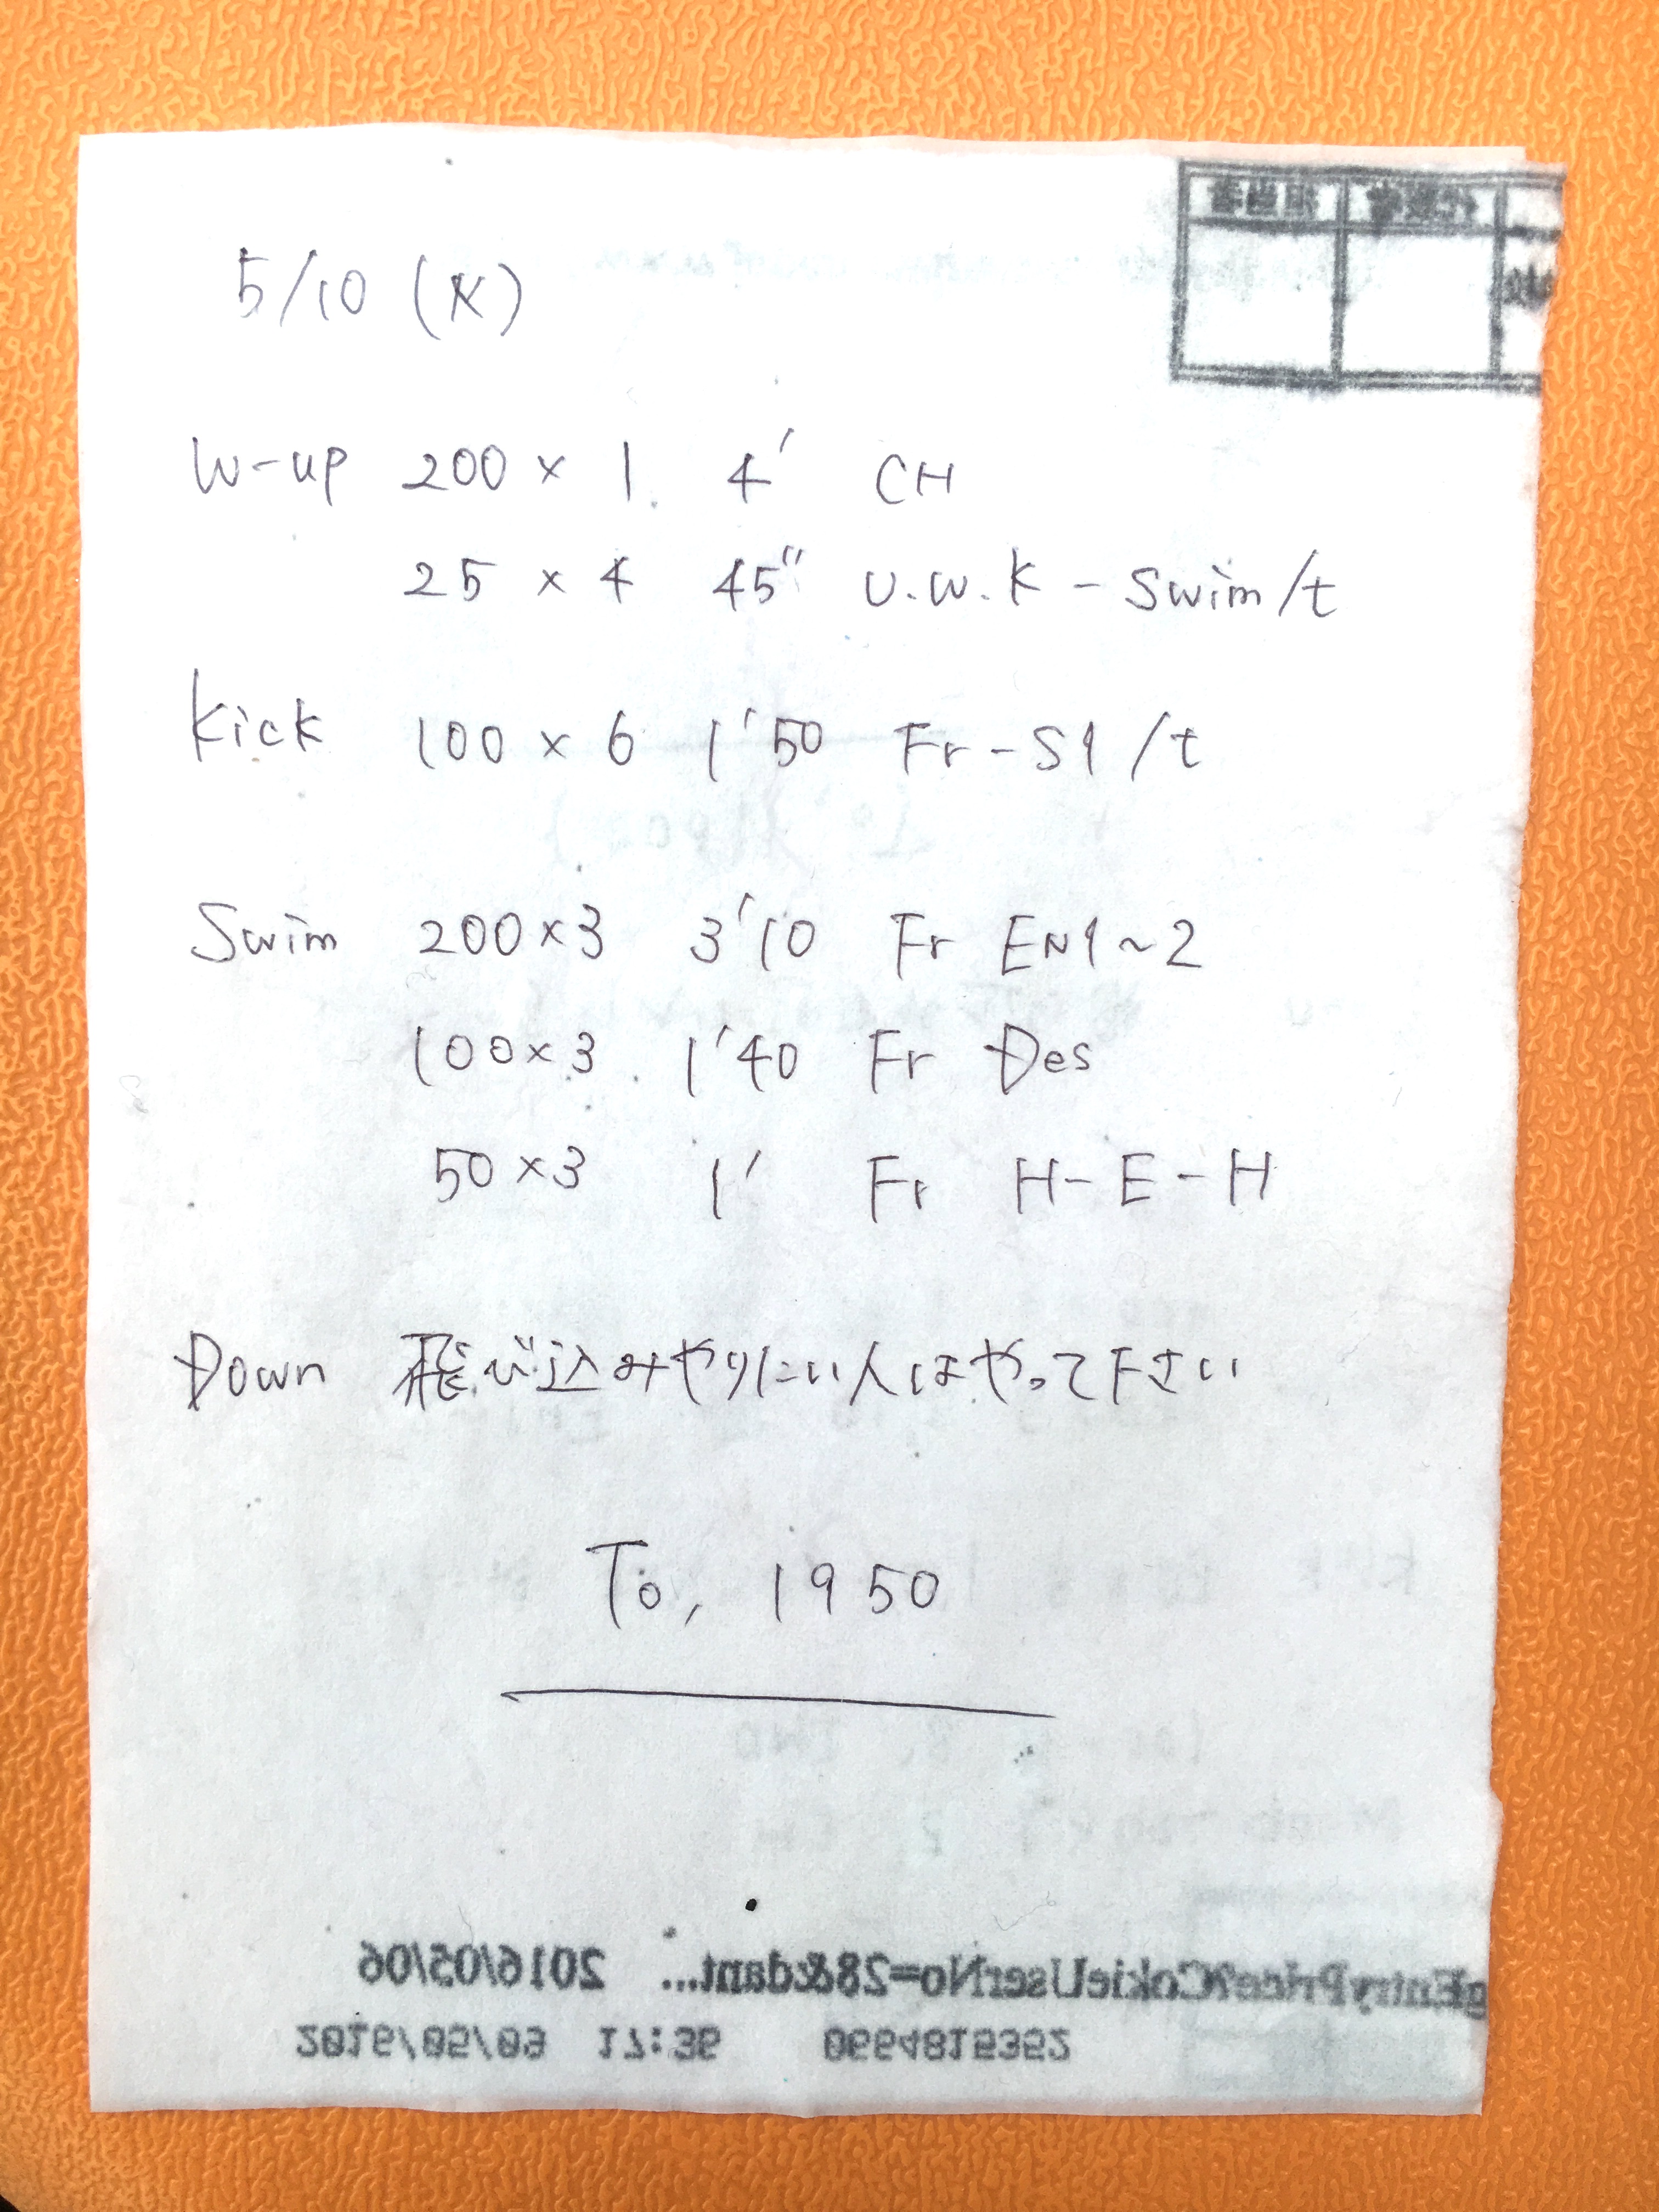 5/10 (火)
W-up 200 × 1 4' CH
25 × 4 45" U.W.K - Swim/t
Kick 100 × 6 1'50 Fr - S1 /t
Swim 200×3 3'10 Fr EN1~2
100×3 1'40 Fr Des
50×3 1' Fr H-E-H
Down 飛び込みやりたい人はやって下さい
To, 1950
gEntryPrice?CokieUserNo=28&dant... 2016/05/06
2016/05/09 17:36 0664815352